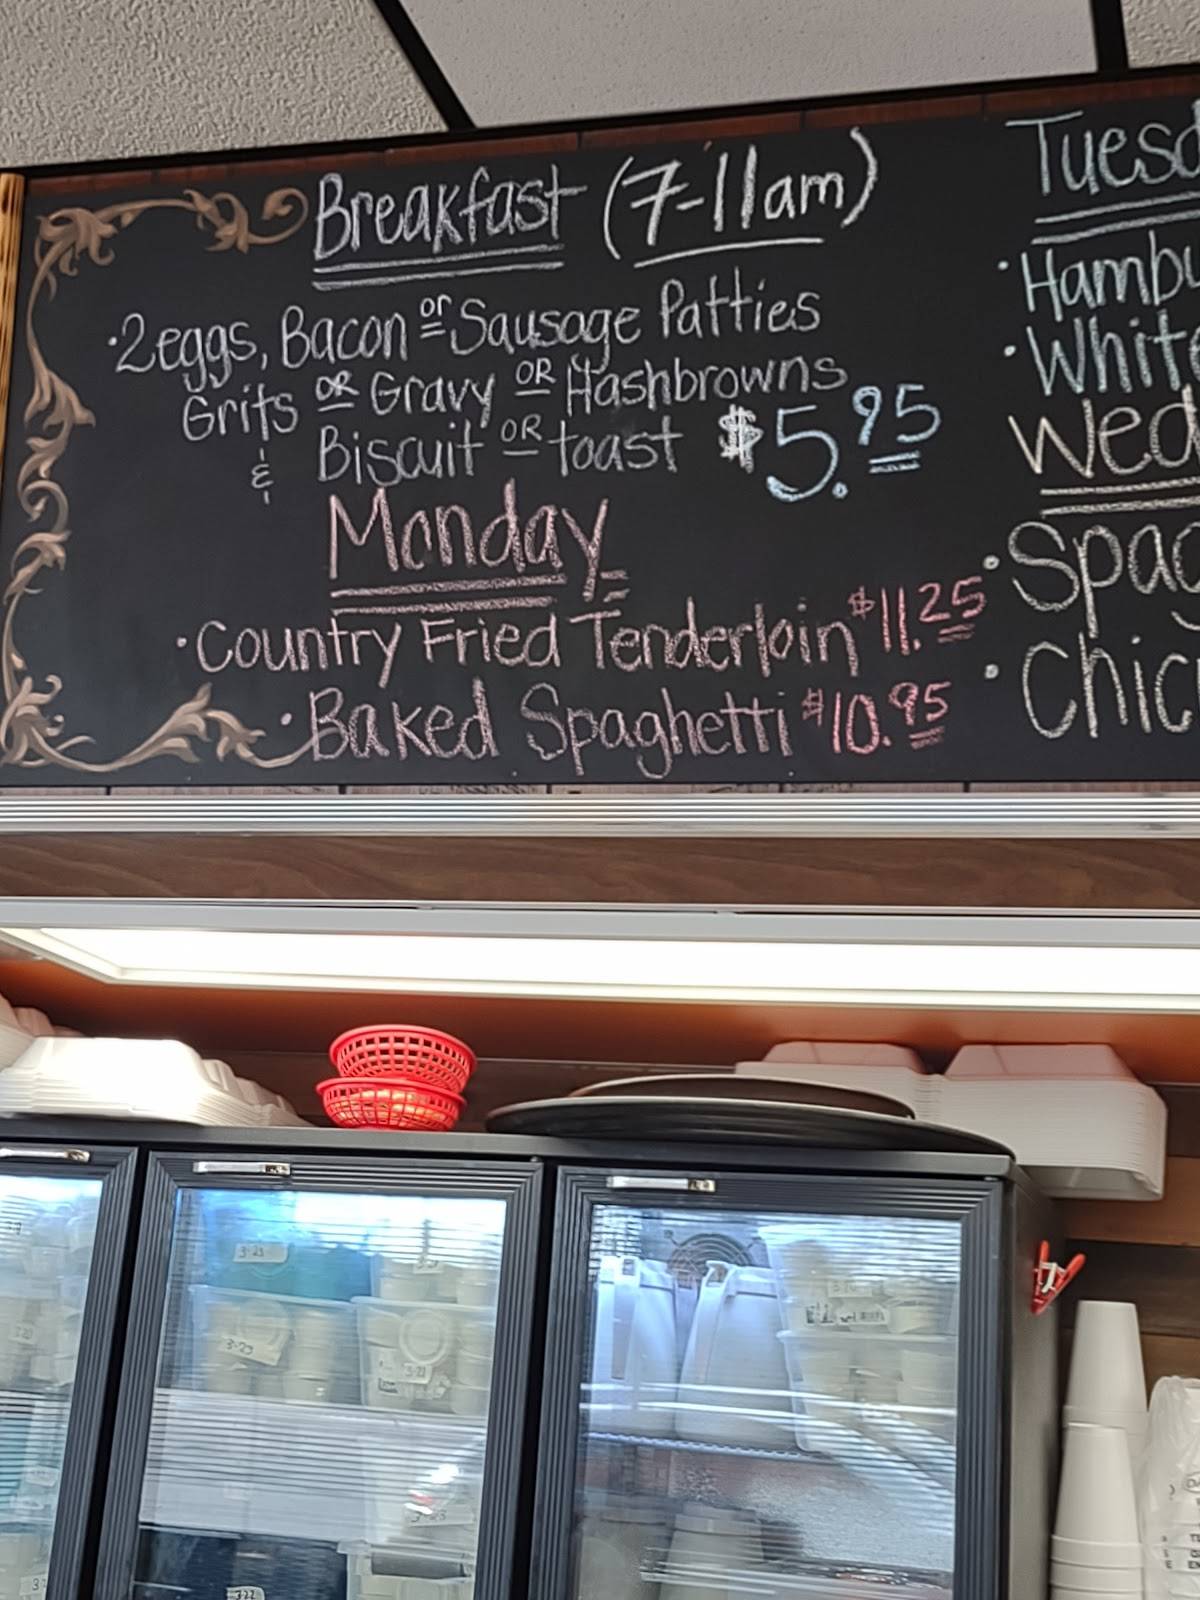 Breakfast (7-11am)
·2eggs, Bacon or Sausage Patties
Grits OR Gravy OR Hashbrowns
& Biscuit OR toast $5.95
Monday
·Country Fried Tenderloin $11.25
·Baked Spaghetti $10.95
Tuesd
·Hambu
·White
Wed
·Spag
·Chic
3-23
3-23
3-23
322